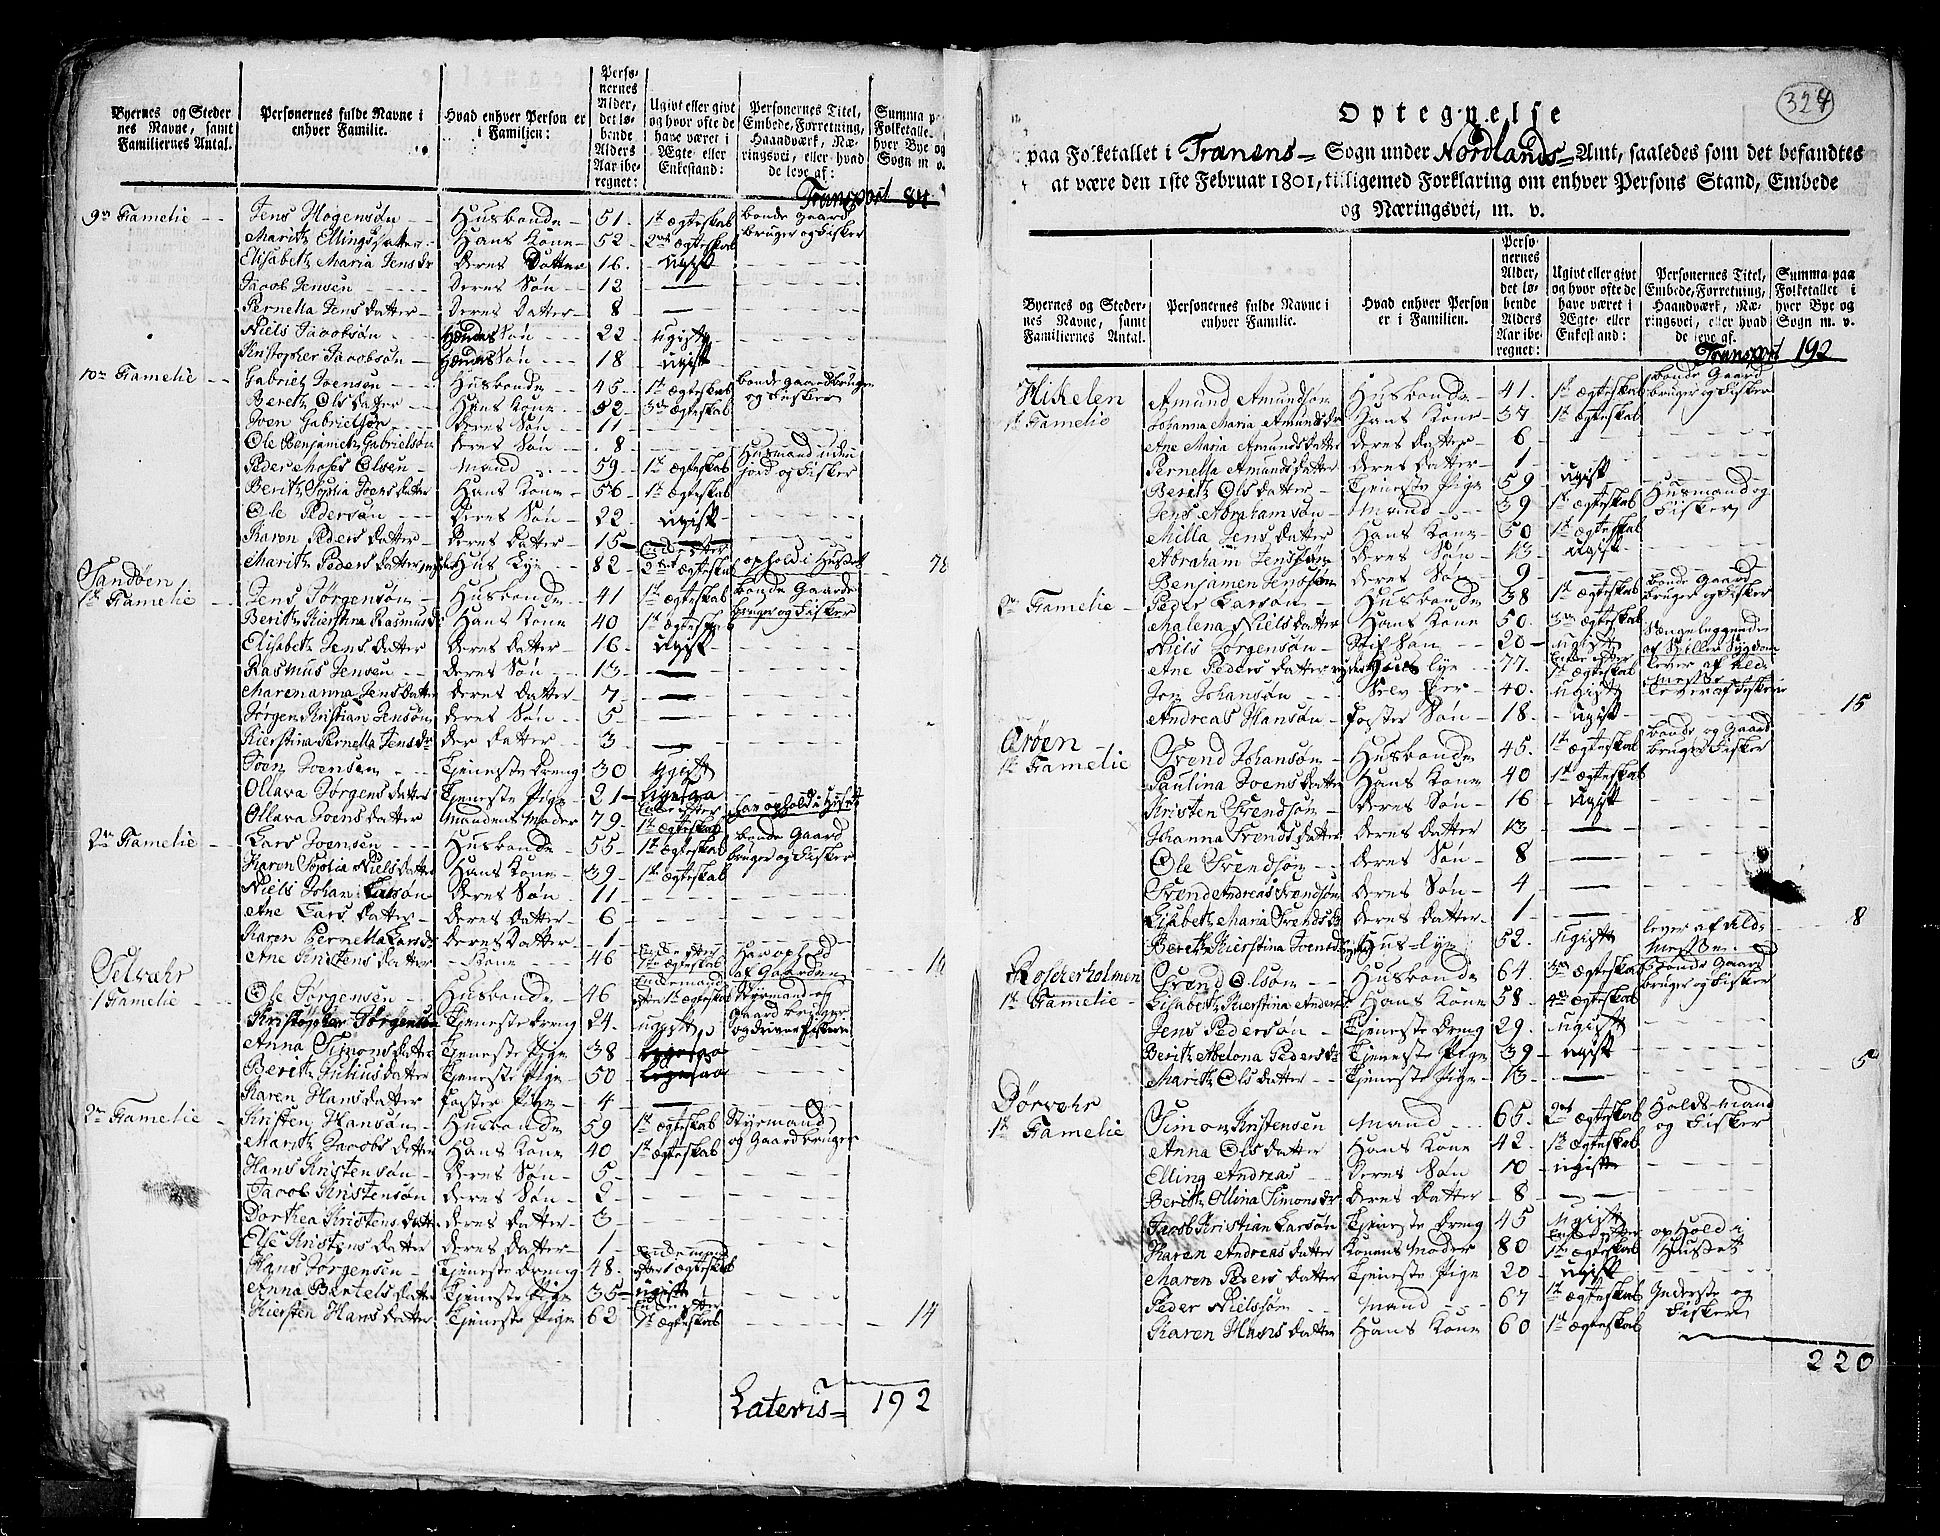 Byernes og Steder
nes Navne, samt
Familiernes Antal.
Personernes fulde Navne i
enhver Familie.
Hvad enhver Person er
i Familien:
Perso-
nernes
Alder,
det lø-
bende
Alders
Aar ibe-
regnet:
Ugivt eller givt
og hvor ofte de
have været i
Ægte eller
Enkestand:
Personernes Titel,
Embede, Forretning,
Haandværk, Næ-
ringsvei, eller hvad
de leve af:
Summa p
Folketalle
hver Bye og
Sogn m v.
Transport 84
9de Famelie Jens Hogensøn Husbonde 51 1te ægteskab bonde Gaard
Marith Ellings datter Hans Kone 52 2det ægteskab bruger og Fisker
Elisabeth Maria Jens dr Deres Datter 16 ugift
Jacob Jensen Deres Søn 12
Pernella Jens datter Deres Datter 8
Niels Jacobsøn Hendes Søn 22 ugift
Kristopher Jacobsøn Hendes Søn 18 ugift
10de Famelie Gabriel Joensøn Husbonde 45 1te ægteskab bonde Gaardbruger
Bereth Ols datter Hans Kone 52 3de ægteskab og Fisker
Joen Gabrielsøn Deres Søn 11
Ole Benjamin Gabrielsøn Deres Søn 8
Peder Moses Olsen Mand 59 1te ægteskab Husmand uden
Berith Sophia Joens datter Hans Kone 56 1te ægteskab jord og Fisker
Ole Pedersøn Deres Søn 22 ugift
Karen Peders datter Deres Datter 15
Marith Peders datter Hus Lye 82 2det ægteskab ophold i Huset 78
Sandøen
1te Famelie Jens Jørgensøn Husbonde 41 1te ægteskab bonde Gaard
Berith Kierstina Rasmus d Hans Kone 40 1te ægteskab bruger og Fisker
Elisabeth Jens datter Deres datter 16 ugift
Rasmus Jensen Deres Søn 13
Marenanna Jens datter deres datter 7
Jørgen Kristian Jensøn deres Søn 5
Kierstina Pernella Jens dr der datter 3
Joen Joensen Tjeneste Dreng 30 ugift
Ollava Jørgens datter Tjeneste Pige 21
Ollava Joens datter Mandens Moder 79 1te ægteskab har ophold i Huset
2den Famelie Lars Joensen Husbonde 55 1te ægteskab bonde Gaard
Karen Sophia Niels datter Hans Kone 39 1te ægteskab bruger og Fisker
Niels Johan Larsøn Deres Søn 11
Ane Lars datter Deres Datter 6
Karen Pernella Lars d deres Datter 1
Ane Kristens datter Kone 46 1te ægteskab Har ophold
af Gaarden
Selvær
1 Famelie Ole Jørgensen Husbonde 46 Enkemand efter 1te ægteskab Styrmand og
Kristopher Jørgensen Tjeneste Dreng 24 ugift Gaard bruger
Anna Simons datter Tjeneste Pige 38 og driver Fiskerie
Berith Julius datter Tjeneste Pige 50
Karen Hans datter Foster Pige 4
2de Famelie Kristen Hansøn Husbonde 59 1te ægteskab Styrmand
Marith Jacobs datter Hans Kone 40 1te ægteskab og Gaardbruger
Hans Kristensøn Deres Søn 5
Jacob Kristensøn deres Søn 2
Dorthea Kristens datt deres datter 3
Else Kristens datter deres datter 1
Hans Jørgensen Tjeneste Dreng 48 Enkemand efter 1 ægteskab
Anna Bertels datter Tjeneste Pige 35 ugift
Kiersten Hans datter Tjeneste Pige 62 ægteskab 14
Lateris 192
324
Optegnelse
paa Folketallet i Tranens Sogn under Nordlands Amt, saaledes som det befandtes
at være den 1ste Februar 1801, tilligemed Forklaring om enhver Persons Stand, Embede
og Næringsvei, m. v.
Byernes og Steder-
nes Navne, samt
Familiernes Antal.
Personernes fulde Navne i
enhver Familie.
Hvad enhver Person
er i Familien.
Perso-
nernes
Alder,
det lø-
bende
Alders
Aar ibe-
regnet:
Ugivt eller givt
og hvor ofte de
have været i
Ægte eller
Enkestand:
Personernes Titel,
Embede, Forretning,
Haandværk, Næ-
ringsvei, eller hvad
de leve af.
Summa paa
Folketallet i
hver Bye og
Sogn m. v.
Transport 192
Hikelen Amund Amundsøn Husbonde 41 1te ægteskab bonde Gaard
1te Famelie Johanna Maria Amunds dr Hans Kone 37 1te ægteskab bruger og Fisker
Ane Maria Amunds datter deres datter 6
Pernella Amunds datter deres datter 1
Bereth Ols datter Tjeneste Pige 59 ugift
Jens Abrahamsøn Mand 39 1te ægteskab Husmand og
Milla Jens datter Hans Kone 50 1te ægteskab Fisker
Abraham Jensøn deres Søn 13 ugift
Benjamen Jensøn deres Søn 9
2de Famelie Peder Larsøn Husbonde 38 1te ægteskab bonde Gaard
Malena Niels datter Hans Kone 50 3de ægteskab bruger og Fisker
Niels Jørgensøn Stif Søn 20 ugift Sængeleggende
Ane Peders datter Huus lye 77 1te ægteskab lever af Alde
Jon Johansøn Selv Eier 40 ugift lever af Fiskerie
Andreas Hansøn Foster Søn 18 ugift 15
Ørøen
1te Famelie Svend Johansøn Husbonde 45 1te ægteskab bonde og Gaard
Paulina Joens datter Hans Kone 40 1te ægteskab bruger Fisker
Kristen Svendsøn Deres Søn 16 ugift
Johanna Svends datter deres datter 13
Ole Svendsøn deres Søn 8
Svend Andreas Svendsøn deres Søn 4
Elisabeth Maria Svends d deres datter 1
Bereth Kierstina Joens d Hus-lye 52 ugift lever af Alde- 8
Roscherholmen Svend Olsøn Husbonde 64 3de ægteskab Bonde Gaard
1te Famelie Lisabeth Kierstina Anders Hans Kone 58 4de ægteskab bruger og Fisker
Jens Pedersøn Tjeneste Dreng 29 ugift
Berith Abelona Peders dr Tjeneste Pige 39 ugift
Marith Ols datter Tjeneste Pige 13 5
Dørvær
1te Famelie Simon Kristensen Mand 65 2det ægteskab Holds-Mand
Anna Ols datter Hans Kone 42 1te ægteskab og Fisker
Elling Andreas Deres Søn 10 ugift
Berith Ollina Simons dr deres datter 8
Jacob Kristian Larsøn Tjeneste Dreng 45 ugift
Karen Andreas datter Konens Moder 80 1te ægteskab ophold i
Maren Peders datter Tjeneste Pige 20 ugift Huset
Peder Nielssøn Mand 67 1te ægteskab Inderste og
Karen Hans datter Hans Kone 60 1te ægteskab Fisker
220